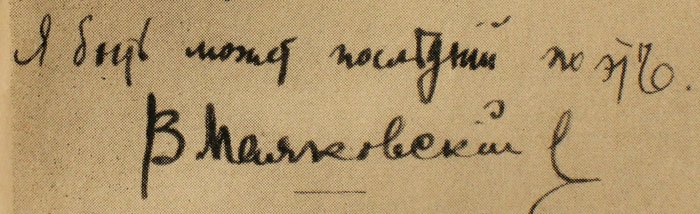 Я быть может послѣдний поэтъ.
В Маяковский